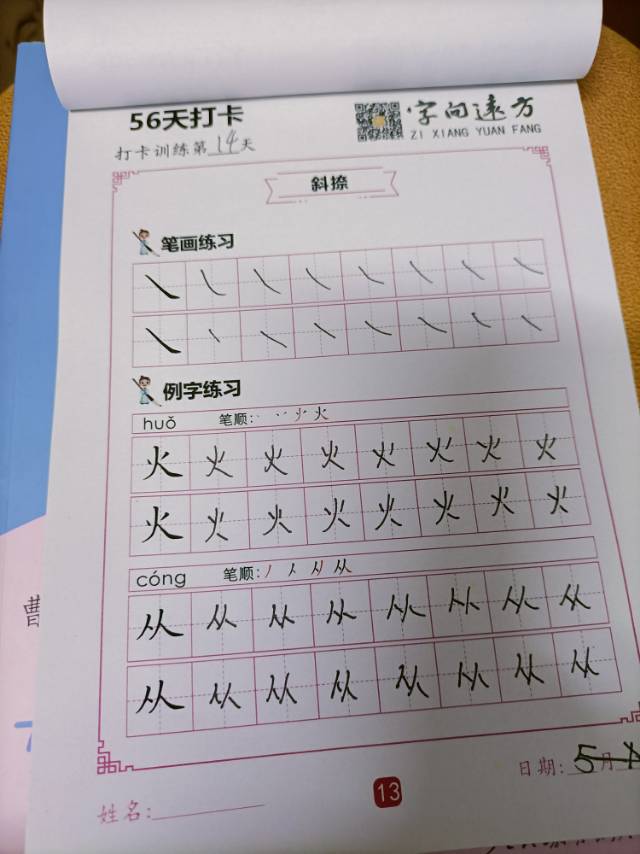 56天打卡
字向远方
ZI XIANG YUAN FANG
打卡训练第14天
斜捺
笔画练习
例字练习
huǒ 笔顺: 火
火 火 火 火 火 火 火 火
火 火 火 火 火 火 火 火
cóng 笔顺: 从
从 从 从 从 从 从 从 从
从 从 从 从 从 从 从 从
日期: 5月
13
姓名:
曹